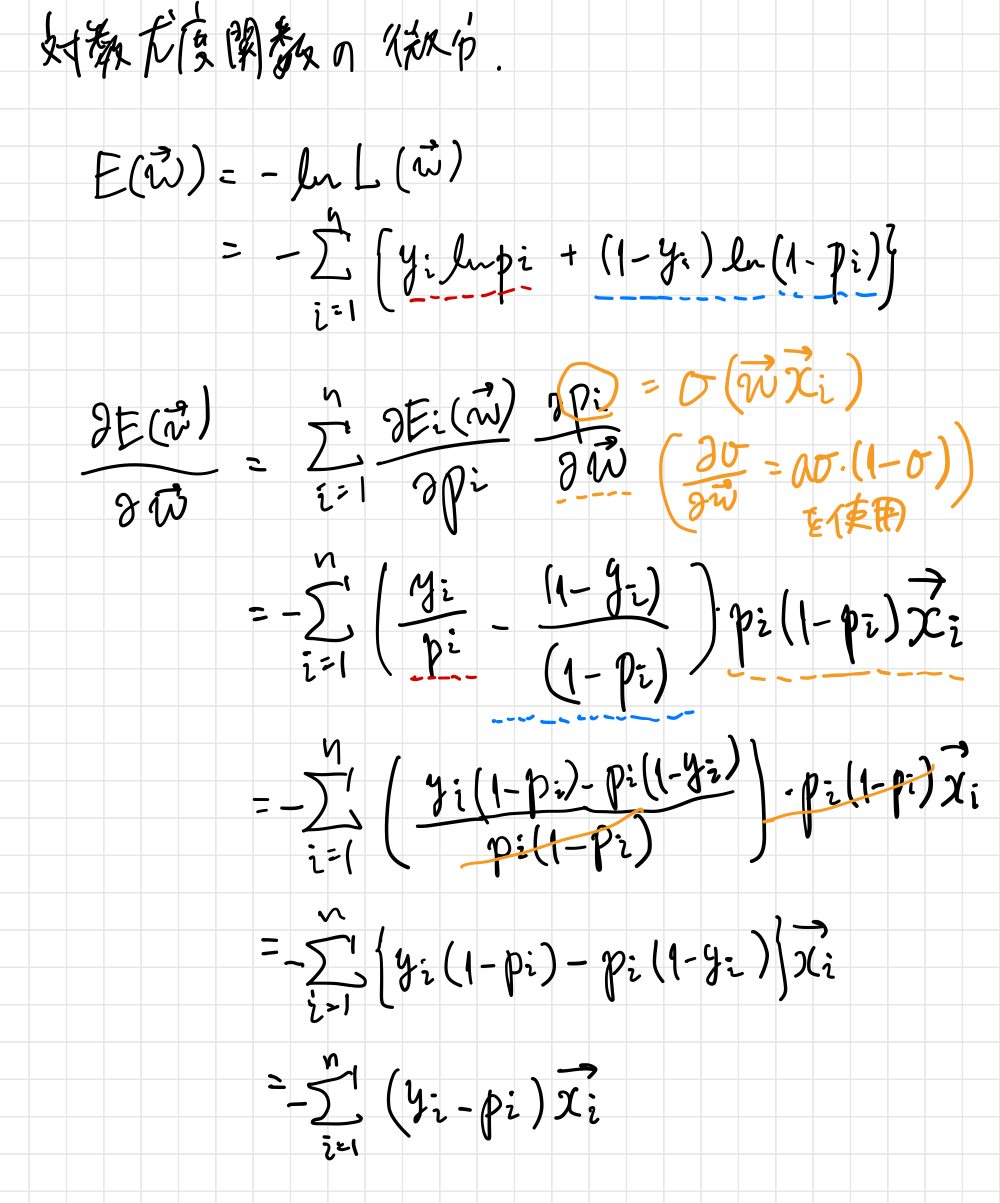 対数尤度関数の微分.
E(w⃗) = - ln L(w⃗)
= -∑_{i=1}^{n} {y_i ln p_i + (1-y_i) ln(1-p_i)}
∂E(w⃗)/∂w⃗ = ∑_{i=1}^{n} ∂E_i(w⃗)/∂p_i ∂p_i/∂w⃗ = σ(w⃗x⃗_i)
(∂σ/∂w⃗ = aσ・(1-σ))
を使用
= -∑_{i=1}^{n} (y_i/p_i - (1-y_i)/(1-p_i))・p_i(1-p_i)x⃗_i
= -∑_{i=1}^{n} ((y_i(1-p_i)-p_i(1-y_i))/(p_i(1-p_i)))・p_i(1-p_i)x⃗_i
= -∑_{i=1}^{n} {y_i(1-p_i)-p_i(1-y_i)}x⃗_i
= -∑_{i=1}^{n} (y_i-p_i)x⃗_i